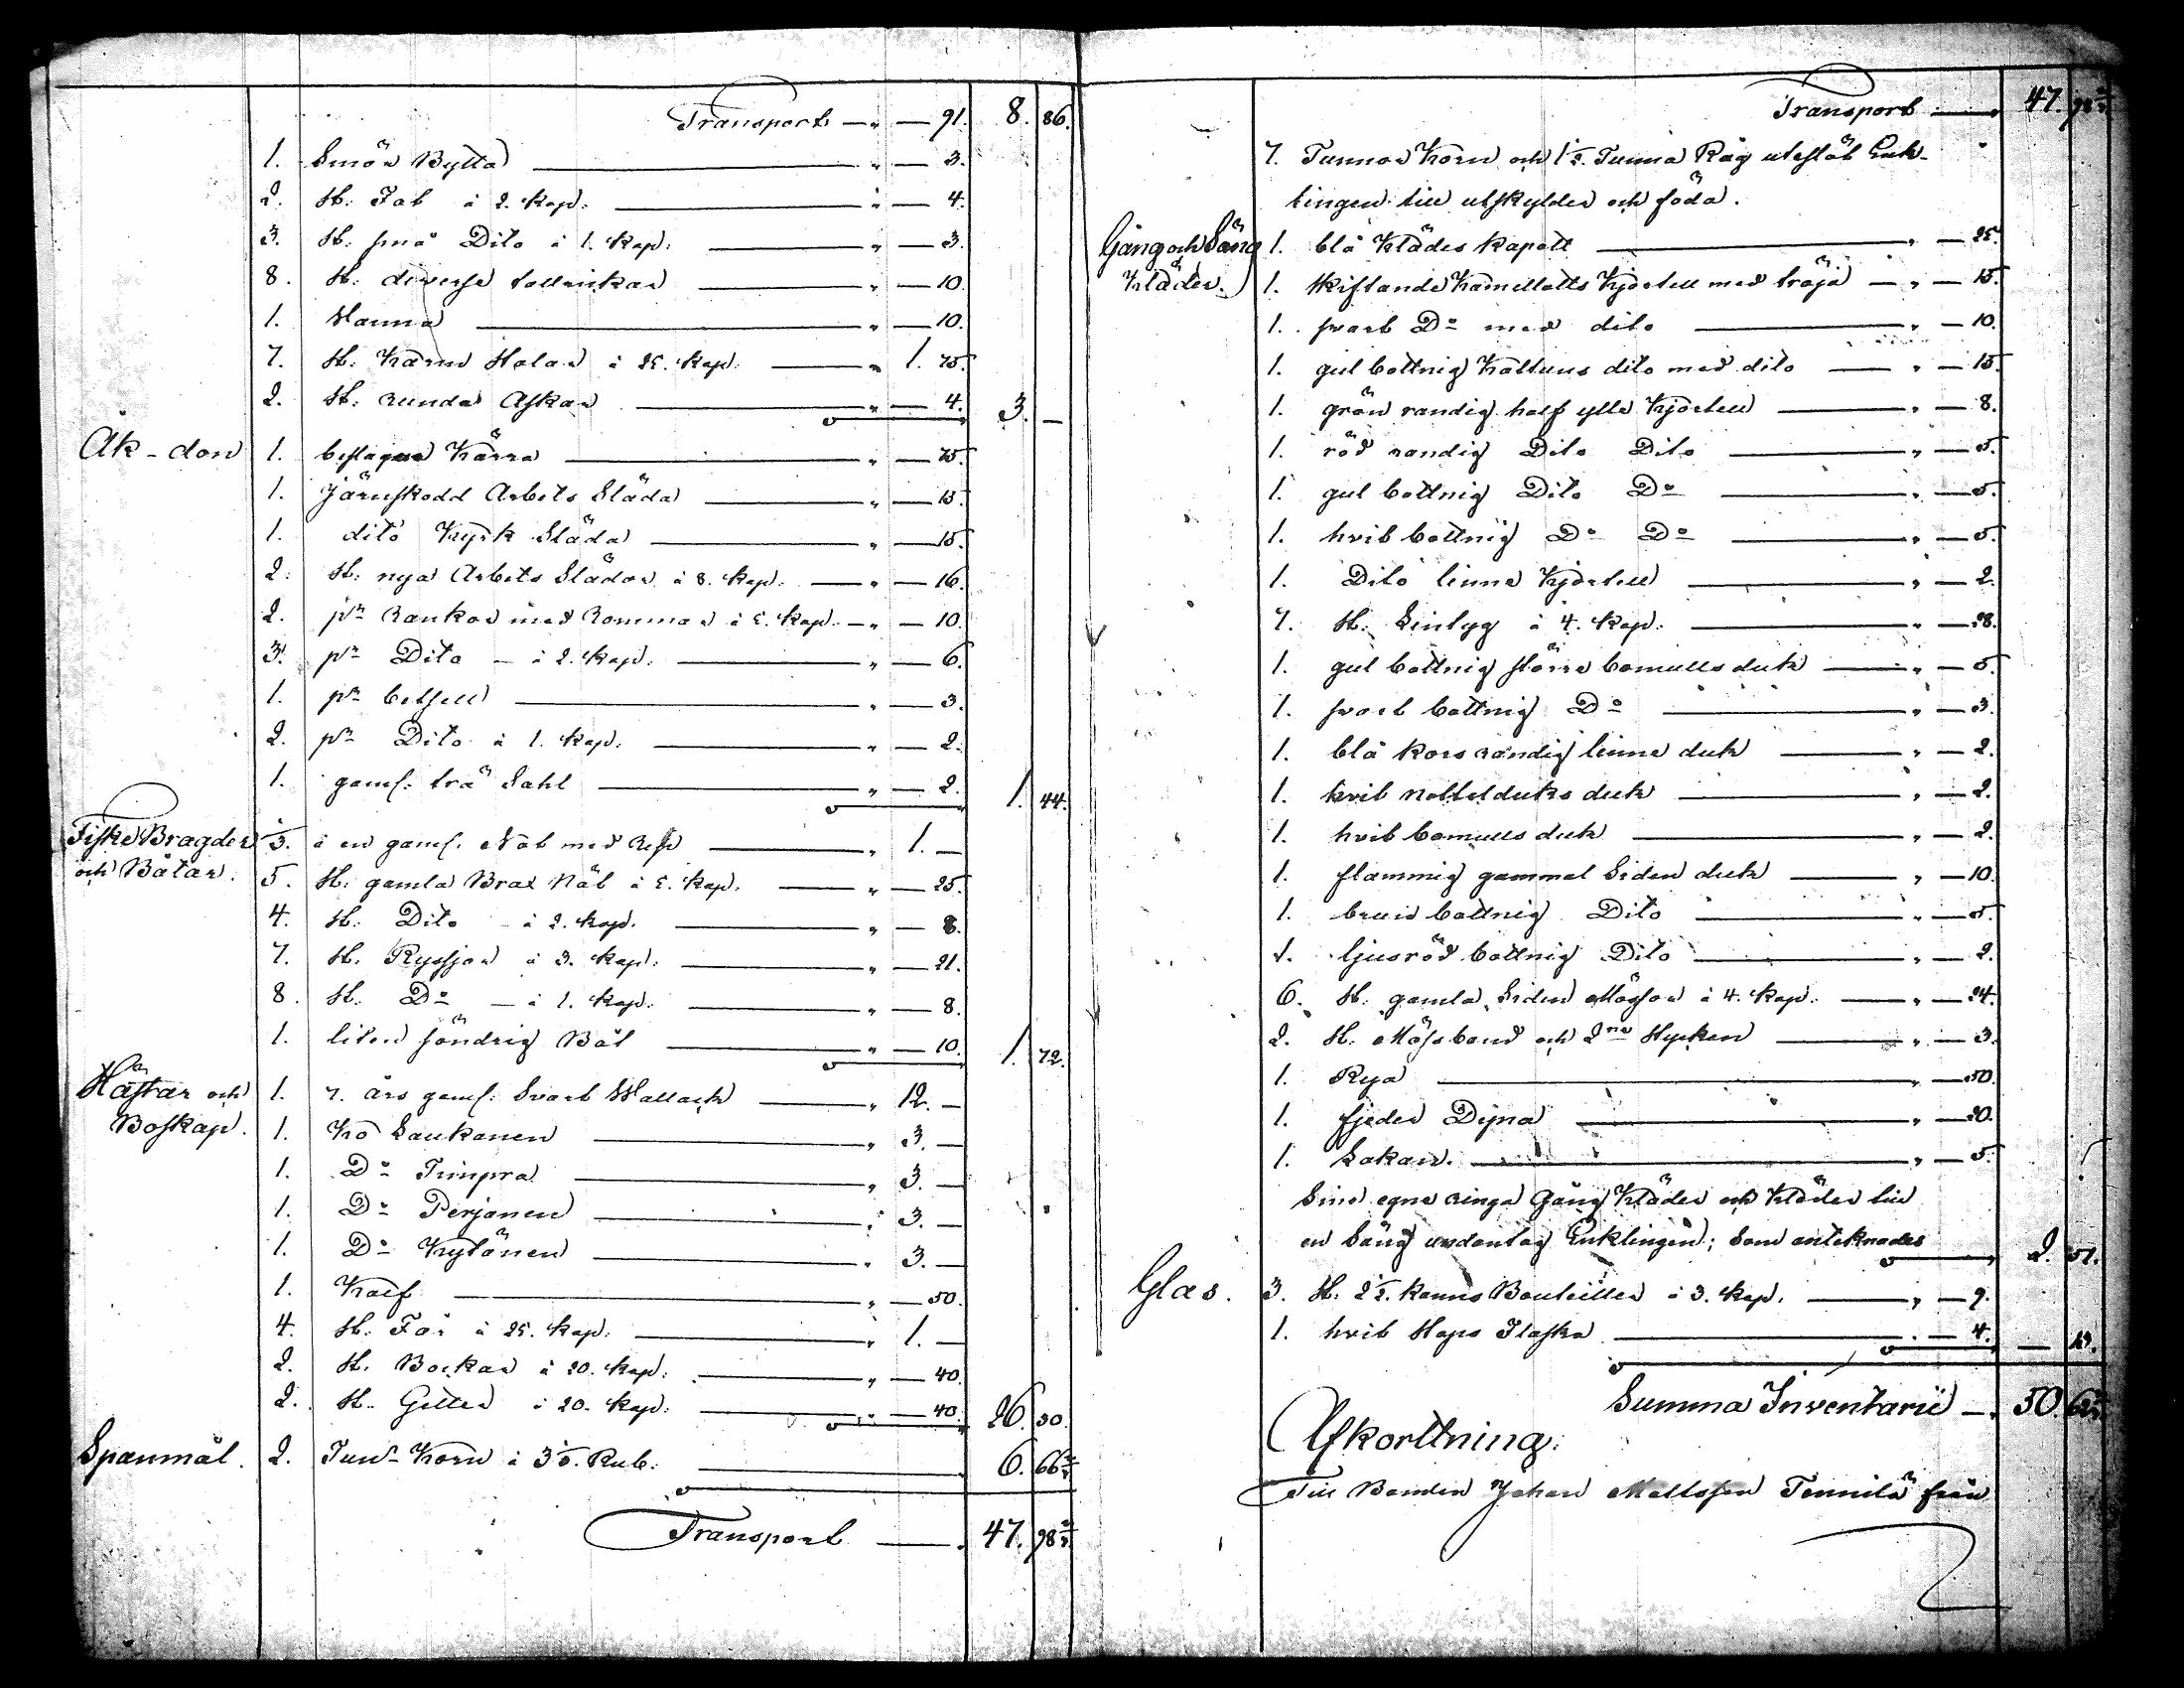 Transport — " — 91. 8. 86.
1. Smör Bytta " — 3.
2. st: Fat à 2. kop: " — 4.
3. st: små Dito à 1. kop: " — 3.
8. st: diverse tallrickar " — 10.
1. Kanna " — 10.
7. st: Kärn Holar à 25. kop: " 1. 75.
2. st: runda Askar " — 4. 3. —
Åk-don 1. beslagen Kärra " — 75.
1. Järnskodd Arbets Släda " — 15.
1. dito Kyrk Släda " — 15.
2. st: nya Arbets Slädor à 8. kop: " — 16.
2. pr Rankor med Rommor à 5. kop: " — 10.
3. pr Dito — à 2. kop: " — 6.
1. pr betsell " — 3.
2. pr Dito à 1. kop: " — 2.
1. gaml: trä Sahl " — 2. 1. 44.
Fiske Bragder 1/3. i en gaml. Not med Rep " 1. —
och Båtar. 5. st: gamla Brax Nät à 5. kop. " — 25.
4. st: Dito — à 2. kop. " — 8.
7. st: Ryssjor à 3. kop: " — 21.
8. st: Do — à 1. kop: " — 8.
1. liten söndrig Båt " — 10. 1. 72.
Hästar och 1. 7. års gaml: Svart Wallack " 12. —
Boskap. 1. Ko Laukonen " 3. —
1. Do Timpra " 3. —
1. Do Perjonen " 3. —
1. Do Kytönen " 3. —
1. Kalf " — 50.
4. st: Får à 25. kop: " 1. —
2. st: Bockar à 20. kop: " — 40.
2. st: Getter à 20. kop: " — 40. 26. 30.
Spanmål. 2. Tunr Korn à 3 1/3. Rub: 6. 66 2/3.
Transport — 47. 98 2/3.
Transport — 47. 98 2/3.
7. Tunnor Korn och 1 1/2. Tunna Råg utestöt Enk-
lingen till utskylder och föda.
Gång och Säng 1. blå Klädes kapott " — 25.
Kläder. 1. skiftande Kamellotts Kjortell med tröja " — 15.
1. svart Do med dito " — 10.
1. gul bottnig Kattuns dito med dito " — 15.
1. grön randig half ylle Kjortell " — 8.
1. röd randig Dito Dito " — 5.
1. gul bottnig Dito Do " — 5.
1. hvit bottnig Do Do " — 5.
1. Dito linne Kjortell " — 2.
7. st: Lintyg à 4. kop: " — 28.
1. gul bottnig större bomulls duk " — 5.
1. svart bottnig Do " — 3.
1. blå kors randig linne duk " — 2.
1. hvit nottelduks duk " — 2.
1. hvit bomulls duk " — 2.
1. flammig gammal Siden duk " — 10.
1. brun bottnig Dito " — 5.
1. ljusröd bottnig Dito " — 2.
6. st: gamla Siden Mössor à 4. kop: " — 24.
2. st: Mössband och 2ne stycken " — 3.
1. Rya " — 50.
1. fjeder Dyna " — 20.
1. Lakan. " — 5.
Sina egna ringa Gång Kläder och Kläder till
en Säng undantog Enklingen; som antecknades 2. 51.
Glas. 3. st: 2 1/2. kanns Bouteiller à 3. kop. " — 9.
1. hvit Hops Flaska " — 4. — 13.
Summa Inventarii — 50. 62 2/3.
Afkorttning:
Till Bonden Johan Mattsson Tennilä från